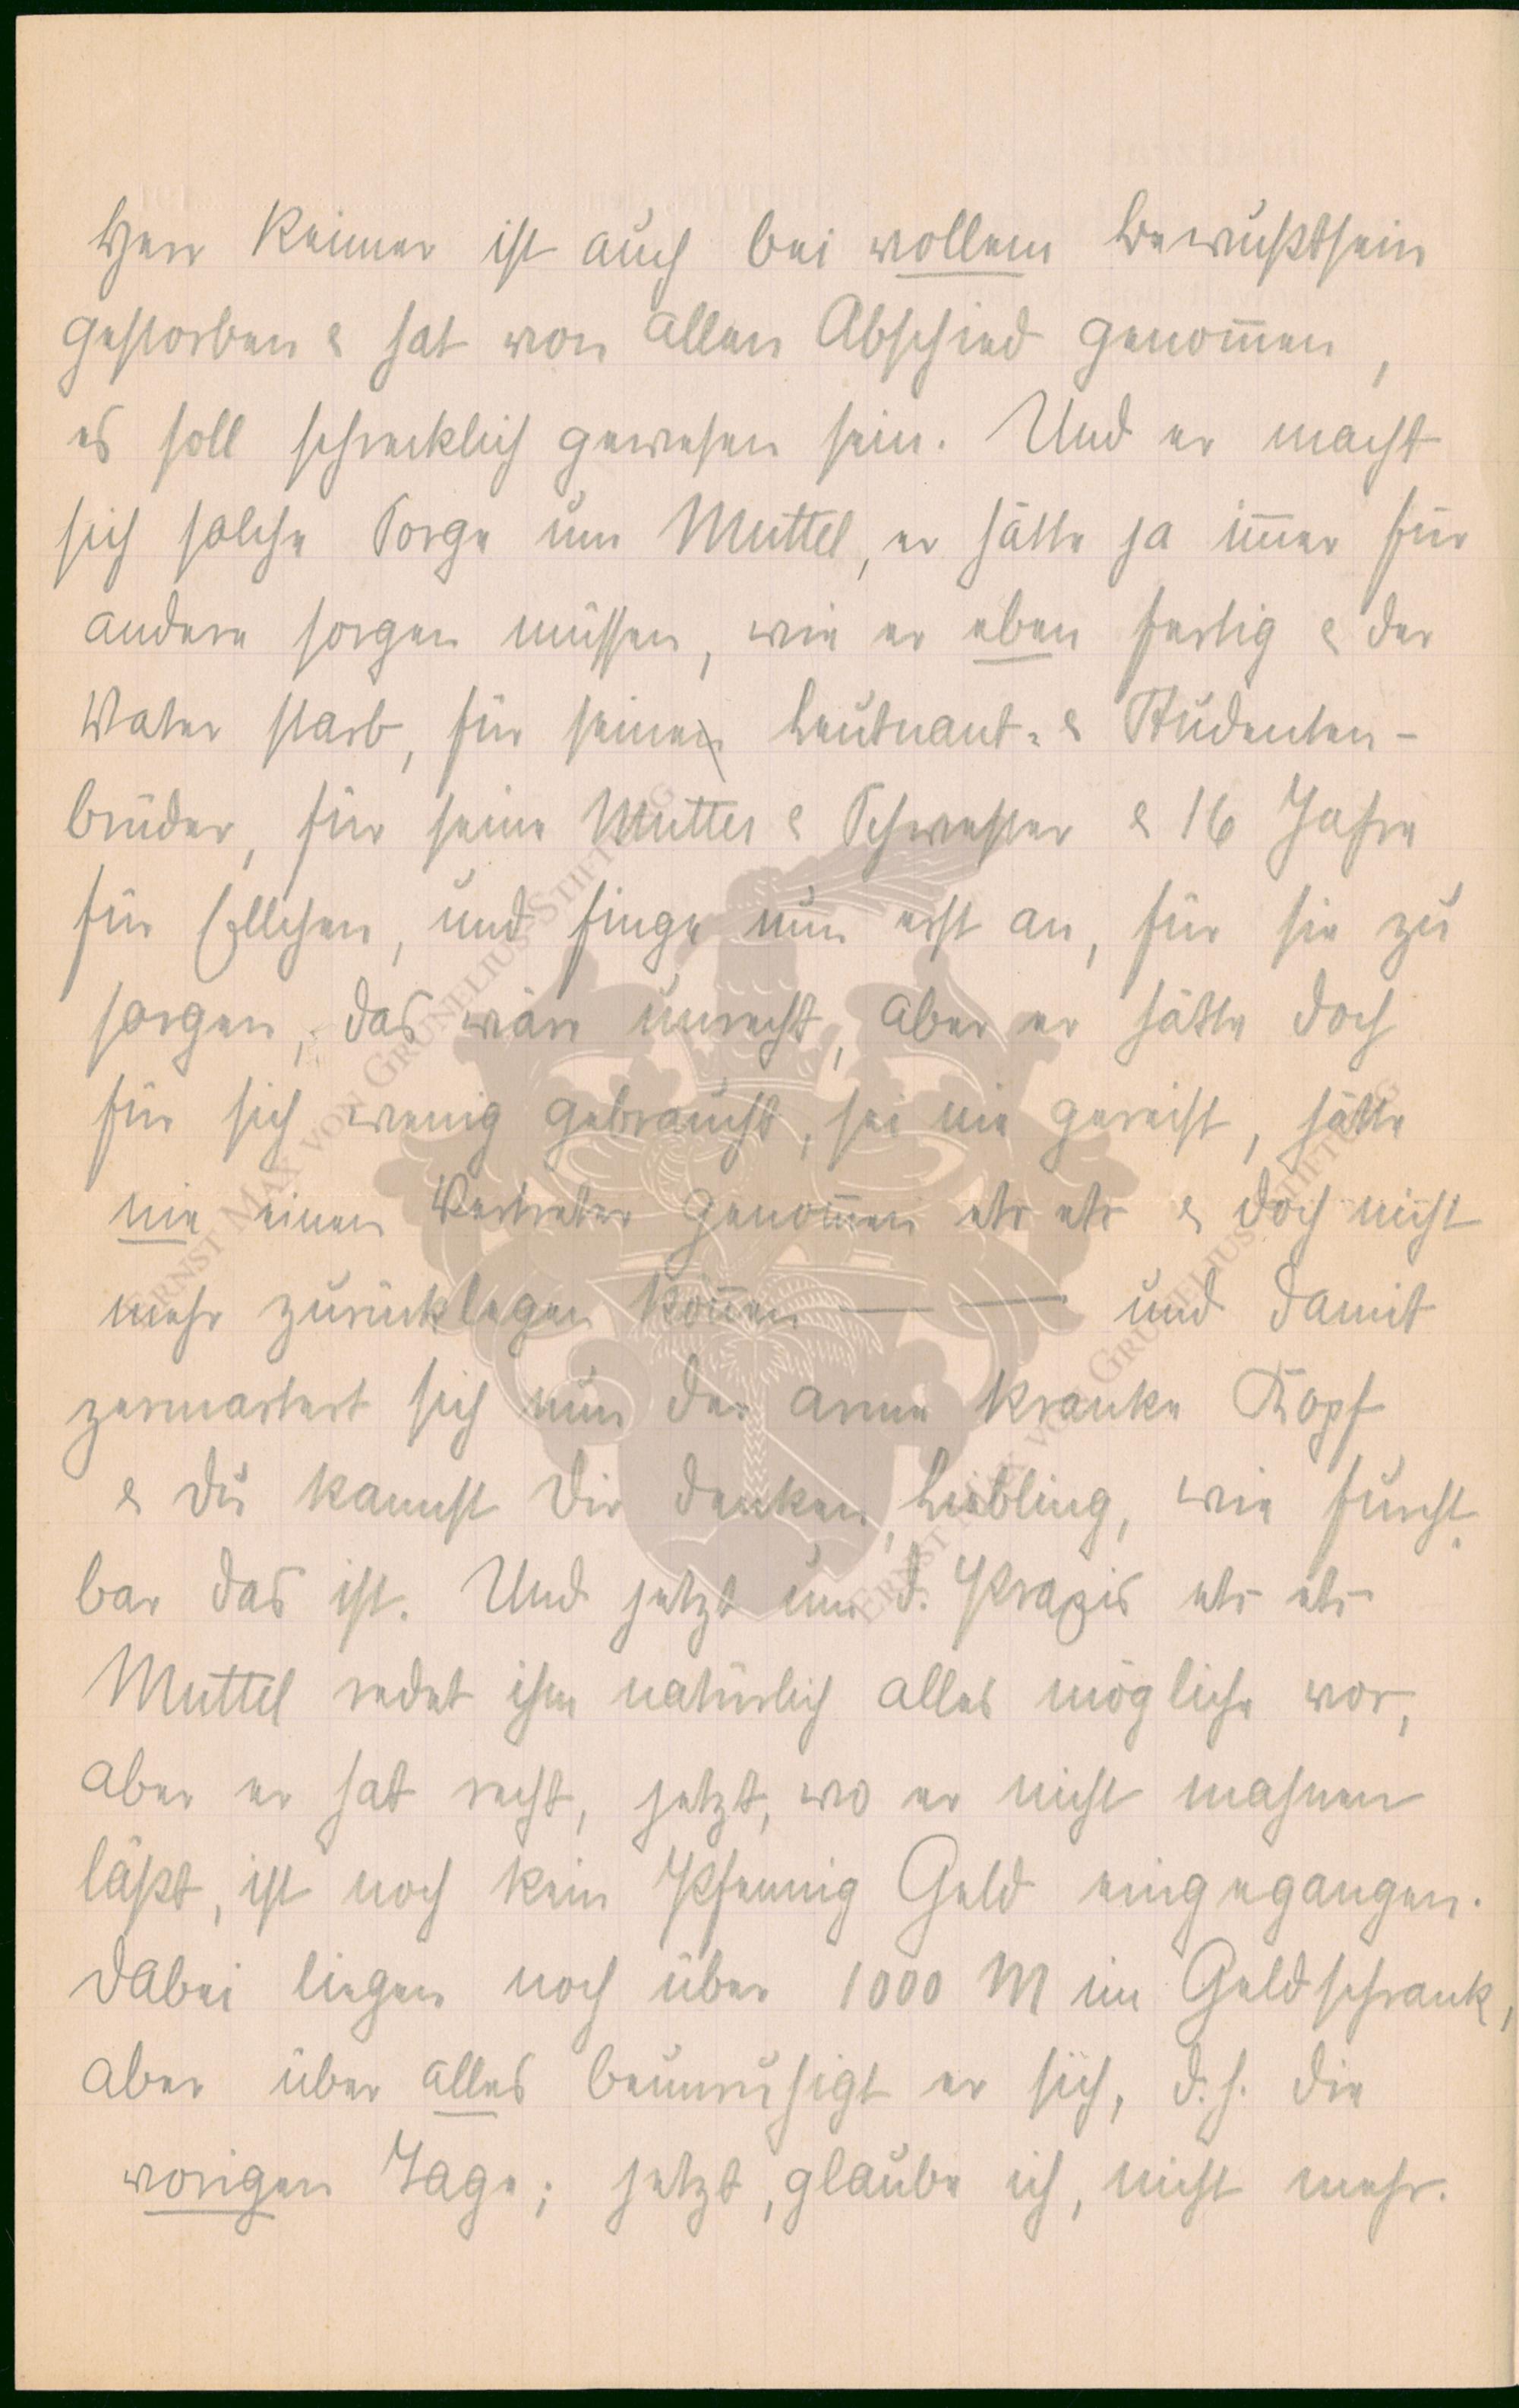 Herr Reimer ist auch bei vollem Bewußtsein
gestorben & hat von allen Abschied genommen,
es soll schrecklich gewesen sein. Und er macht
sich solche Sorge um Muttel, er hätte ja immer für
andere sorgen müssen, wie er eben fertig & der
Vater starb, für seinen Leutnant- & Studenten-
brüder, für seine Mutter & Schwester & 16 Jahre
für Ellchen, und finge nun erst an, für sie zu
sorgen, das wäre unrecht, aber er hätte doch
für sich wenig gebraucht, sei nie gereist, hätte
nie einen Vertreter genommen etc etc & doch nicht
mehr zurücklegen können — — und damit
zermartert sich nun der arme kranke Kopf
& Du kannst Dir denken, Liebling, wie furcht-
bar das ist. Und jetzt um d. Praxis etc etc
Muttel redet ihm natürlich alles mögliche vor,
aber er hat recht, jetzt, wo er nicht mahnen
läßt, ist noch kein Pfennig Geld eingegangen.
Dabei liegen noch über 1000 M im Geldschrank,
aber über alles beunruhigt er sich, d. h. die
vorigen Tage; jetzt, glaube ich, nicht mehr.
ERNST MAX VON GRUNELIUS-STIFTUNG
ERNST MAX VON GRUNELIUS-STIFTUNG